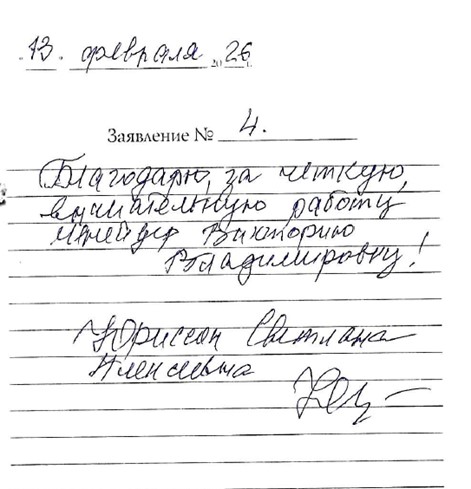 13. февраля 2026
Заявление № 4.
Благодарю, за четкую,
внимательную работу
Викторию
Владимировну!
Светлана
Алексеевна